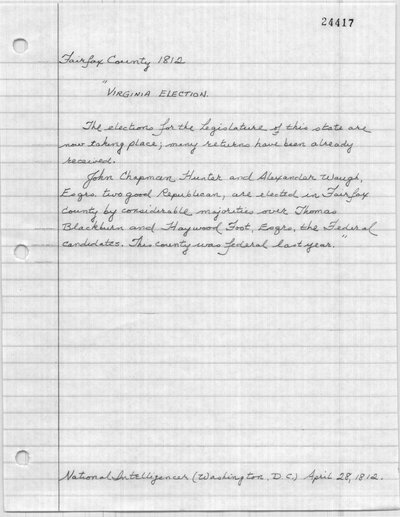 24417
Fairfax County 1812
"
VIRGINIA ELECTION.
The elections for the legislature of this state are
now taking place; many returns have been already
received.
John Chapman Hunter and Alexander Waugh,
Esqrs. two good Republican, are elected in Fairfax
County by considerable majorities over Thomas
Blackburn and Haywood Foot, Esqrs, the Federal
candidates. This county was federal last year."
National Intelligencer (Washington, D.C.) April 28, 1812.